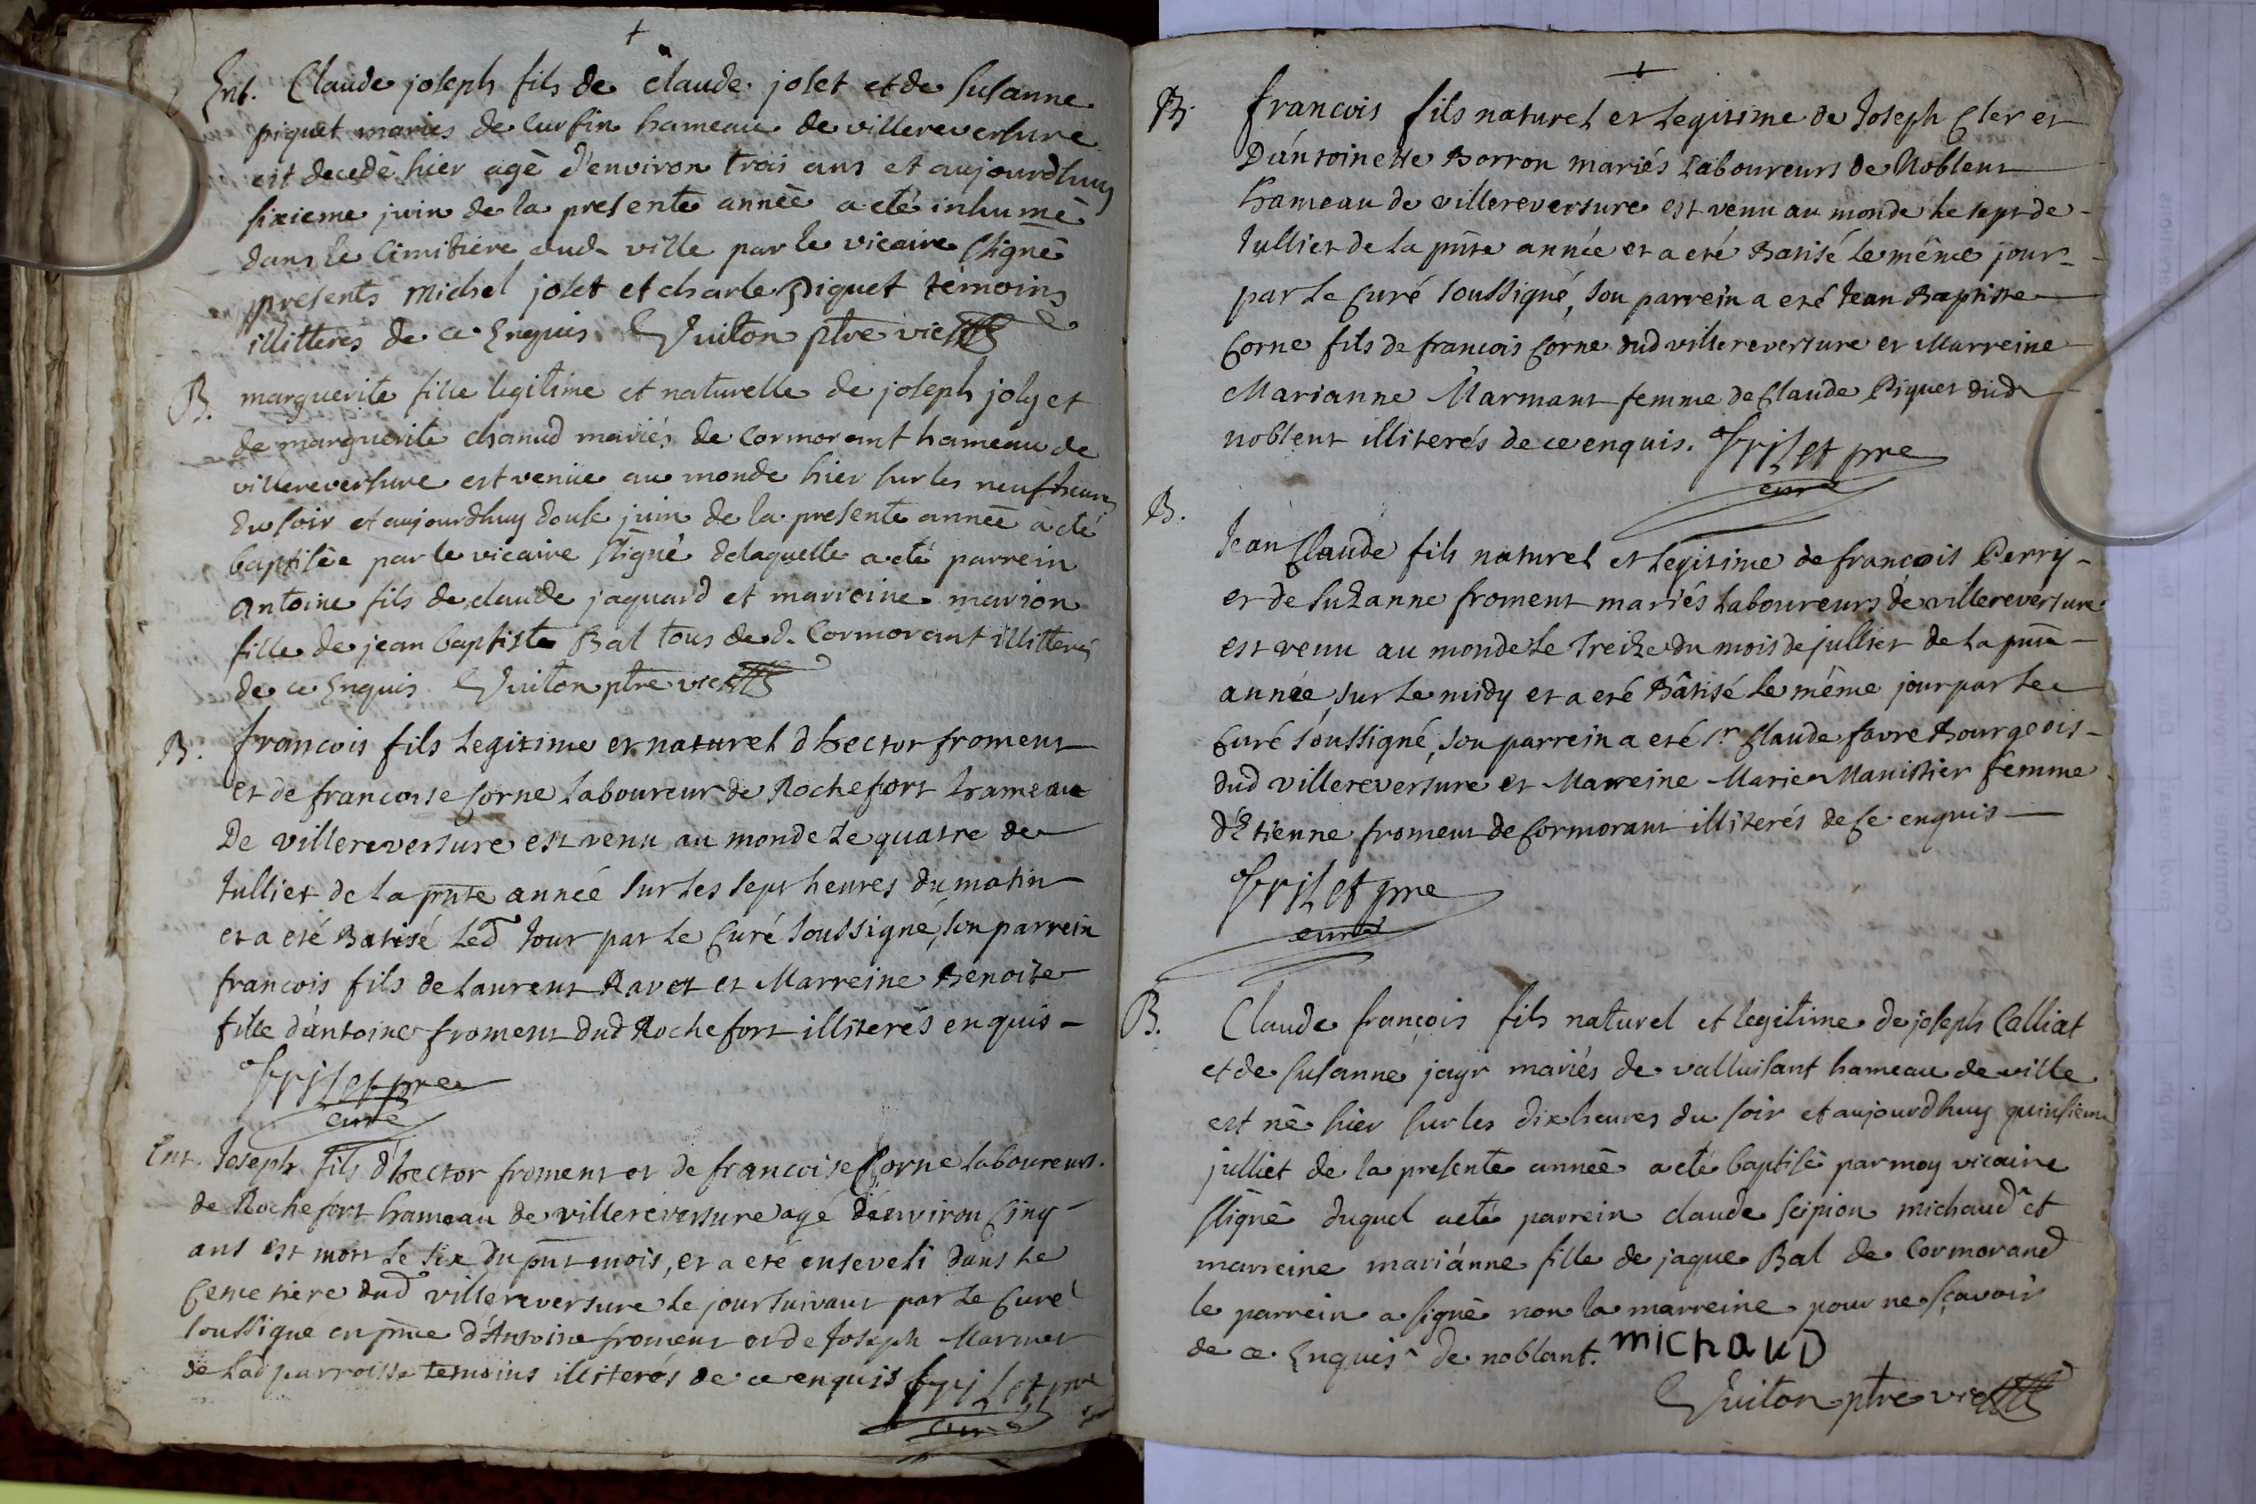 Ent. Claude joseph fils de claude joset et de susanne
piquet mariés de curfin hameau de villereversure
est decedé hier agé d'environ trois ans et aujourdhuy
sixieme juin de la presente année a eté inhumé
dans le cimitiere dud. ville par le vicaire ssigné
presents michel joset et charle piquet témoins
illitterés de ce enquis Guiton ptre vic
B. marguerite fille legitime et naturelle de joseph joly et
de marguerite chanud mariés de cormorant hameau de
villereversure est venüe au monde hier sur les neuf heures
du soir et aujourdhuy douse juin de la presente année a eté
baptisée par le vicaire ssigné delaquelle a eté parrein
antoine fils de claude jaquard et marreine marion
fille de jean baptiste Bal tous de d. Cormorant illitterés
de ce enquis Guiton ptre vic
B. francois fils legitime et naturel d hector froment
et de francoise Corne laboureur de Rochefort hameau
De villereversure est venu au monde le quatre de
Julliet de la pnte année sur les sept heures du matin
et a eté Batisé led Jour par le Curé soussigné, son parrein
francois fils de laurent Ravet et Marreine Benoite
fille d'antoine froment dud Rochefort illiterés enquis
frilet pre
curé
Ent. Joseph fils d'hector froment et de francoise Corne laboureurs
de Rochefort hameau de villereversure agé d'environ Cinq
ans est mort le six du pnt mois, et a eté enseveli dans le
Cemetiere dud villereversure le jour suivant par le Curé
soussigné en pnce d'Antoine froment et de Joseph Marmet
de lad parroisse temoins illiterés de ce enquis frilet pre
curé
B. francois fils naturel et legitime de Joseph Cler et
D'antoinette Borron mariés laboureurs de Noblent
hameau de villereversure est venu au monde le sept de
Julliet de la pnte année et a eté Batisé le même jour
par le Curé soussigné, son parrein a eté Jean Baptiste
Corne fils de francois Corne dud villereversure et Marreine
Marianne Marmant femme de Claude Piquet dud
noblent illiterés de ce enquis. frilet pre
curé
B. Jean Claude fils naturel et legitime de françois Perry
et de Suzanne froment mariés laboureurs de villereversure
est venu au monde le treize du mois de julliet de la pnte
année, sur le midy et a eté Bâtisé le même jour par le
Curé soussigné, son parrein a eté sr Claude favre Bourgeois
dud villereversure et Marreine Marie Manissier femme
d'Etienne froment de Cormorant illiterés de Ce enquis
frilet pre
curé
B. Claude françois fils naturel et legitime de joseph Calliat
et de susanne jayr mariés de valluisant hameau de ville
est né hier sur les dix heures du soir et aujourdhuy quinsieme
julliet de la presente année a eté baptisé par moy vicaire
ssigné duquel a eté parrein claude scipion michaud ^ et
marreine mariánne fille de jaque Bal de Cormorand
le parrein a signé non la marreine pour ne sçavoir
de ce enquis ^ de noblant. MICHAUD
Guiton ptre vic